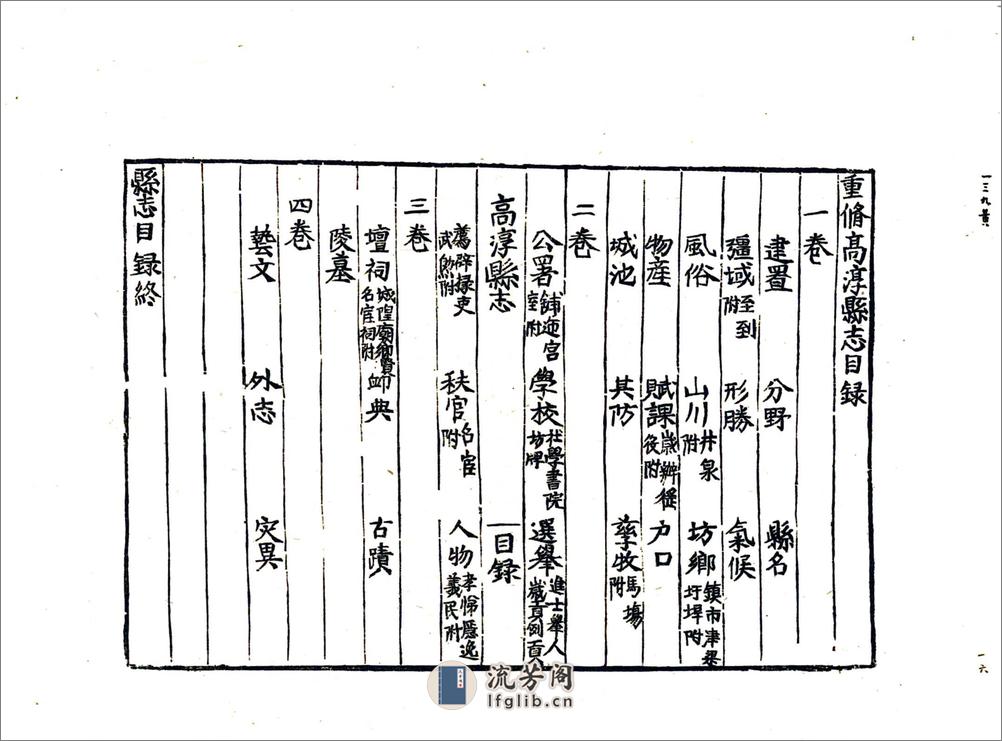 重脩高淳縣志目錄
一卷
建置 分野 縣名
疆域至到附 形勝 氣候
風俗 山川井泉附 坊鄉鎮市津圩埠附
物産 賦課歲辦徭後附 戶口
城池 其防 孳牧馬塲附
二卷
公署舖迤宮室附 學校社學書院坊牌 選舉進士舉人歲貢例貢
高淳縣志 目錄 一
薦辟掾吏武勲附 秩官名宦附 人物孝悌隱逸義民附
三卷
壇祠城隍廟鄉賢名宦祠附 祀典 古蹟
陵墓
四卷
藝文 外志 灾異
縣志目錄終
一三九黄
一六
流芳阁
lfglib.cn